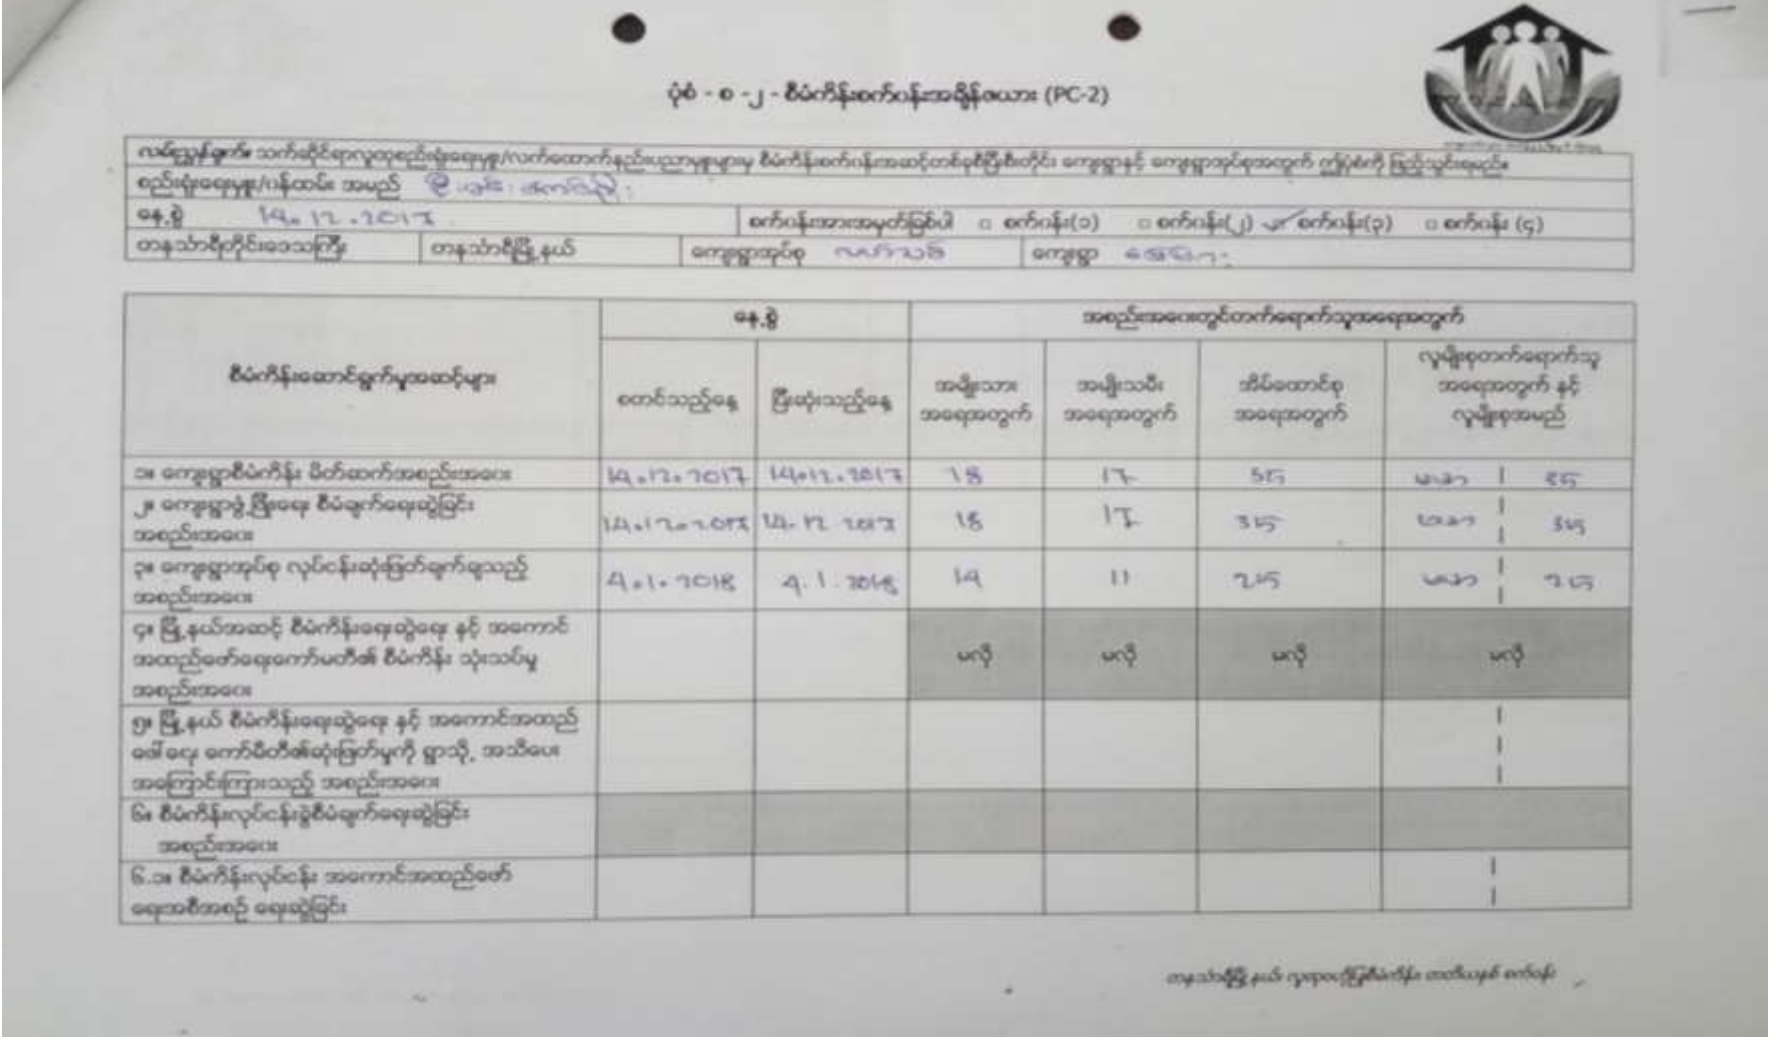 ပုံစံ - စ -၂ - စီမံကိန်းစက်ဝန်းအချိန်ဇယား (PC-2)
လမ်းညွှန်ချက်။ သက်ဆိုင်ရာလူထုစည်းရုံးရေးမှူး/လက်ထောက်နည်းပညာမှူးများမှ စီမံကိန်းစက်ဝန်းအဆင့်တစ်ခုစီပြီးစီးတိုင်း ကျေးရွာနှင့် ကျေးရွာအုပ်စုအတွက် ဤပုံစံကို ဖြည့်သွင်းရမည်။
စည်းရုံးရေးမှူး/ဝန်ထမ်း အမည်
နေ့စွဲ 14.12.2017 စက်ဝန်းအားအမှတ်ခြစ်ပါ □ စက်ဝန်း(၁) □ စက်ဝန်း(၂) ✓ စက်ဝန်း(၃) □ စက်ဝန်း (၄)
တနင်္သာရီတိုင်းဒေသကြီး တနင်္သာရီမြို့နယ် ကျေးရွာအုပ်စု ကျေးရွာ
စီမံကိန်းဆောင်ရွက်မှုအဆင့်များ
နေ့စွဲ
အစည်းအဝေးတွင်တက်ရောက်သူအရေအတွက်
စတင်သည့်နေ့
ပြီးဆုံးသည့်နေ့
အမျိုးသား
အရေအတွက်
အမျိုးသမီး
အရေအတွက်
အိမ်ထောင်စု
အရေအတွက်
လူမျိုးစုတက်ရောက်သူ
အရေအတွက် နှင့်
လူမျိုးစုအမည်
၁။ ကျေးရွာစီမံကိန်း မိတ်ဆက်အစည်းအဝေး 14.12.2017 14.12.2017 18 17 35 ဗမာ 35
၂။ ကျေးရွာဖွံ့ဖြိုးရေး စီမံချက်ရေးဆွဲခြင်း
အစည်းအဝေး 14.12.2017 14.12.2017 18 17 35 ဗမာ 35
၃။ ကျေးရွာအုပ်စု လုပ်ငန်းဆုံးဖြတ်ချက်ချသည့်
အစည်းအဝေး 4.1.2018 4.1.2018 14 11 25 ဗမာ 25
၄။ မြို့နယ်အဆင့် စီမံကိန်းရေးဆွဲရေး နှင့် အကောင်
အထည်ဖော်ရေးကော်မတီ၏ စီမံကိန်း သုံးသပ်မှု
အစည်းအဝေး မလို မလို မလို မလို
၅။ မြို့နယ် စီမံကိန်းရေးဆွဲရေး နှင့် အကောင်အထည်
ဖေါ်ရေး ကော်မီတီ၏ဆုံးဖြတ်မှုကို ရွာသို့ အသိပေး
အကြောင်းကြားသည့် အစည်းအဝေး
၆။ စီမံကိန်းလုပ်ငန်းခွဲစီမံချက်ရေးဆွဲခြင်း
အစည်းအဝေး
၆.၁။ စီမံကိန်းလုပ်ငန်း အကောင်အထည်ဖော်
ရေးအစီအစဉ် ရေးဆွဲခြင်း
တနင်္သာရီမြို့နယ် လူထုဗဟိုပြုစီမံကိန်း တတိယနှစ် စက်ဝန်း